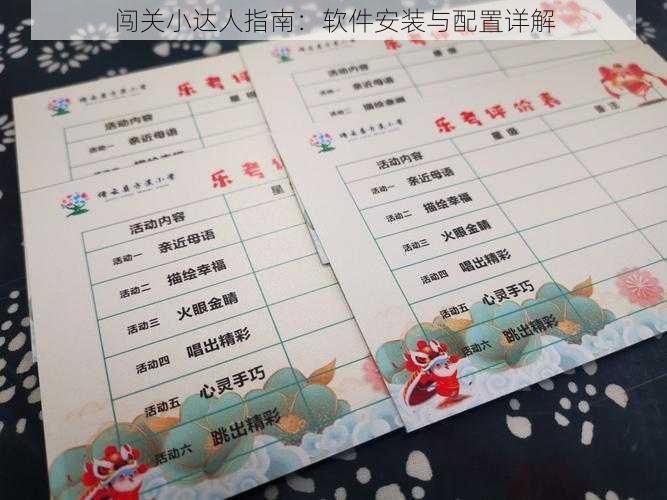 闯关小达人指南：软件安装与配置详解
乐考评
活动内容
星级
活动一 亲近母语
活动二 描绘幸福
活动内容
活动一 亲近母语
活动二 描绘幸福
乐考评价表
活动内容 星级 备注
活动一 亲近母语
活动二 描绘幸福
活动三 火眼金睛
活动四 唱出精彩
活动五 心灵手巧
活动六 跳出精彩
乐考
活动内容 星
活动一 亲近母语
活动二 描绘幸福
活动三 火眼金睛
活动四 唱出精彩
活动五 心灵手巧
活动六 跳出精彩